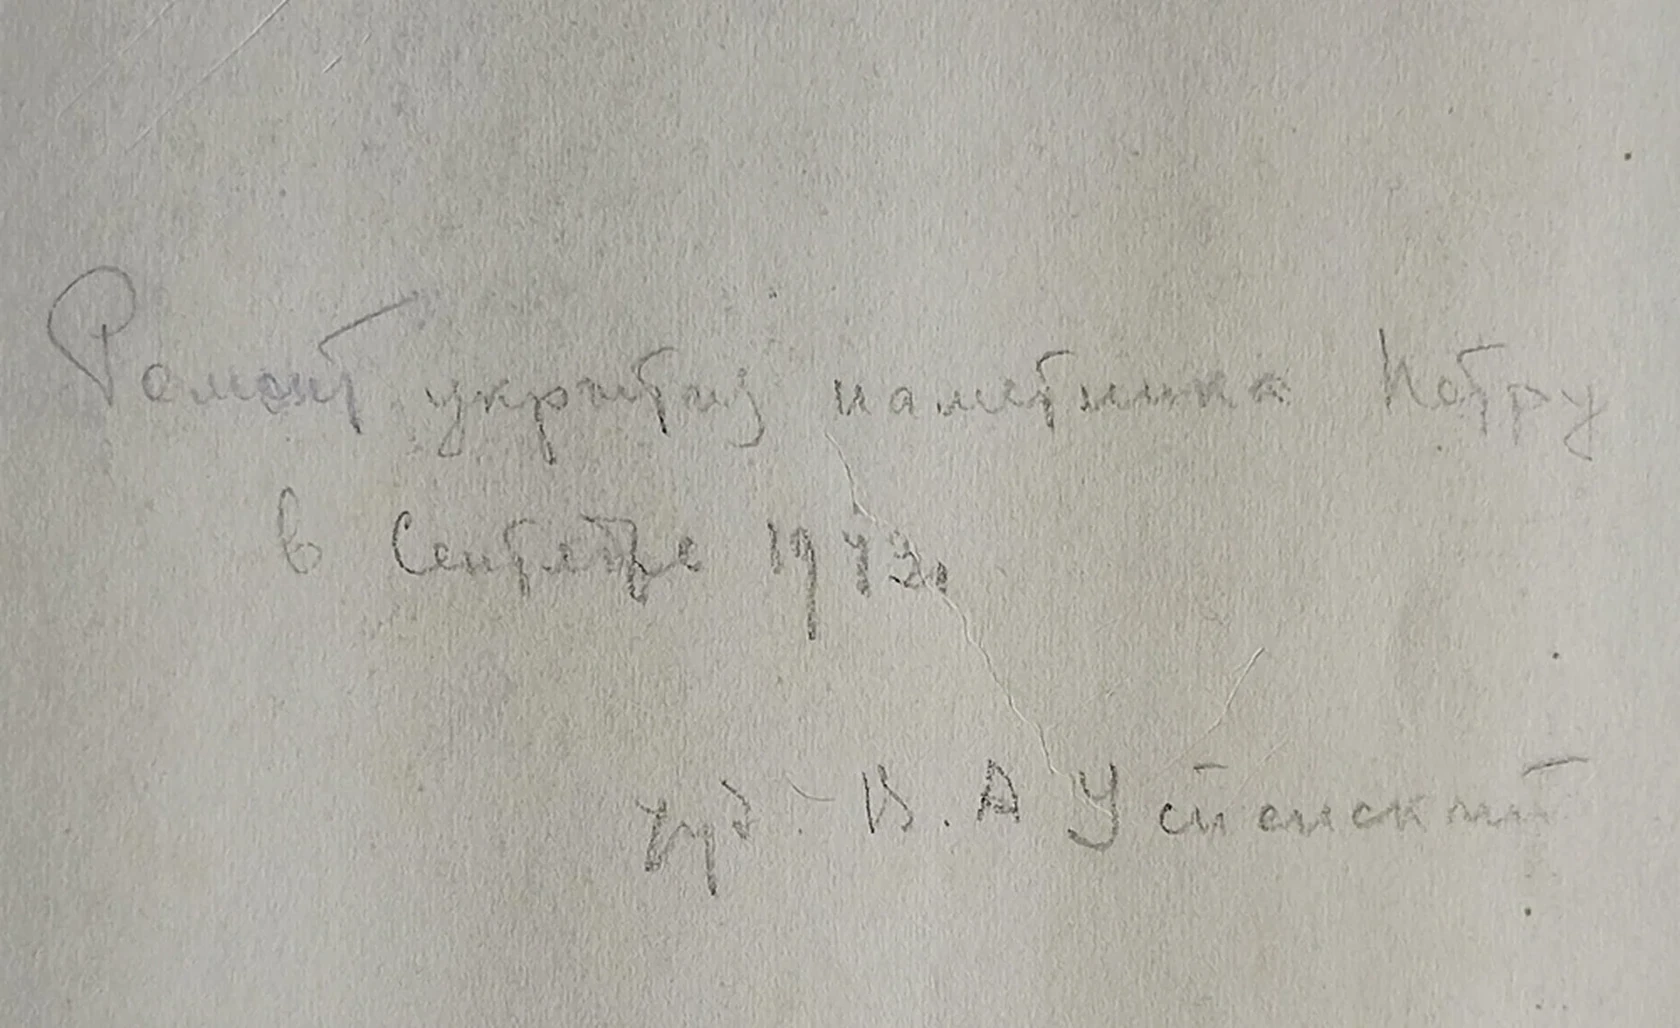 Ремонт укрытия памятника Петру
в Сентябре 1943.
худ. В. А Успенский